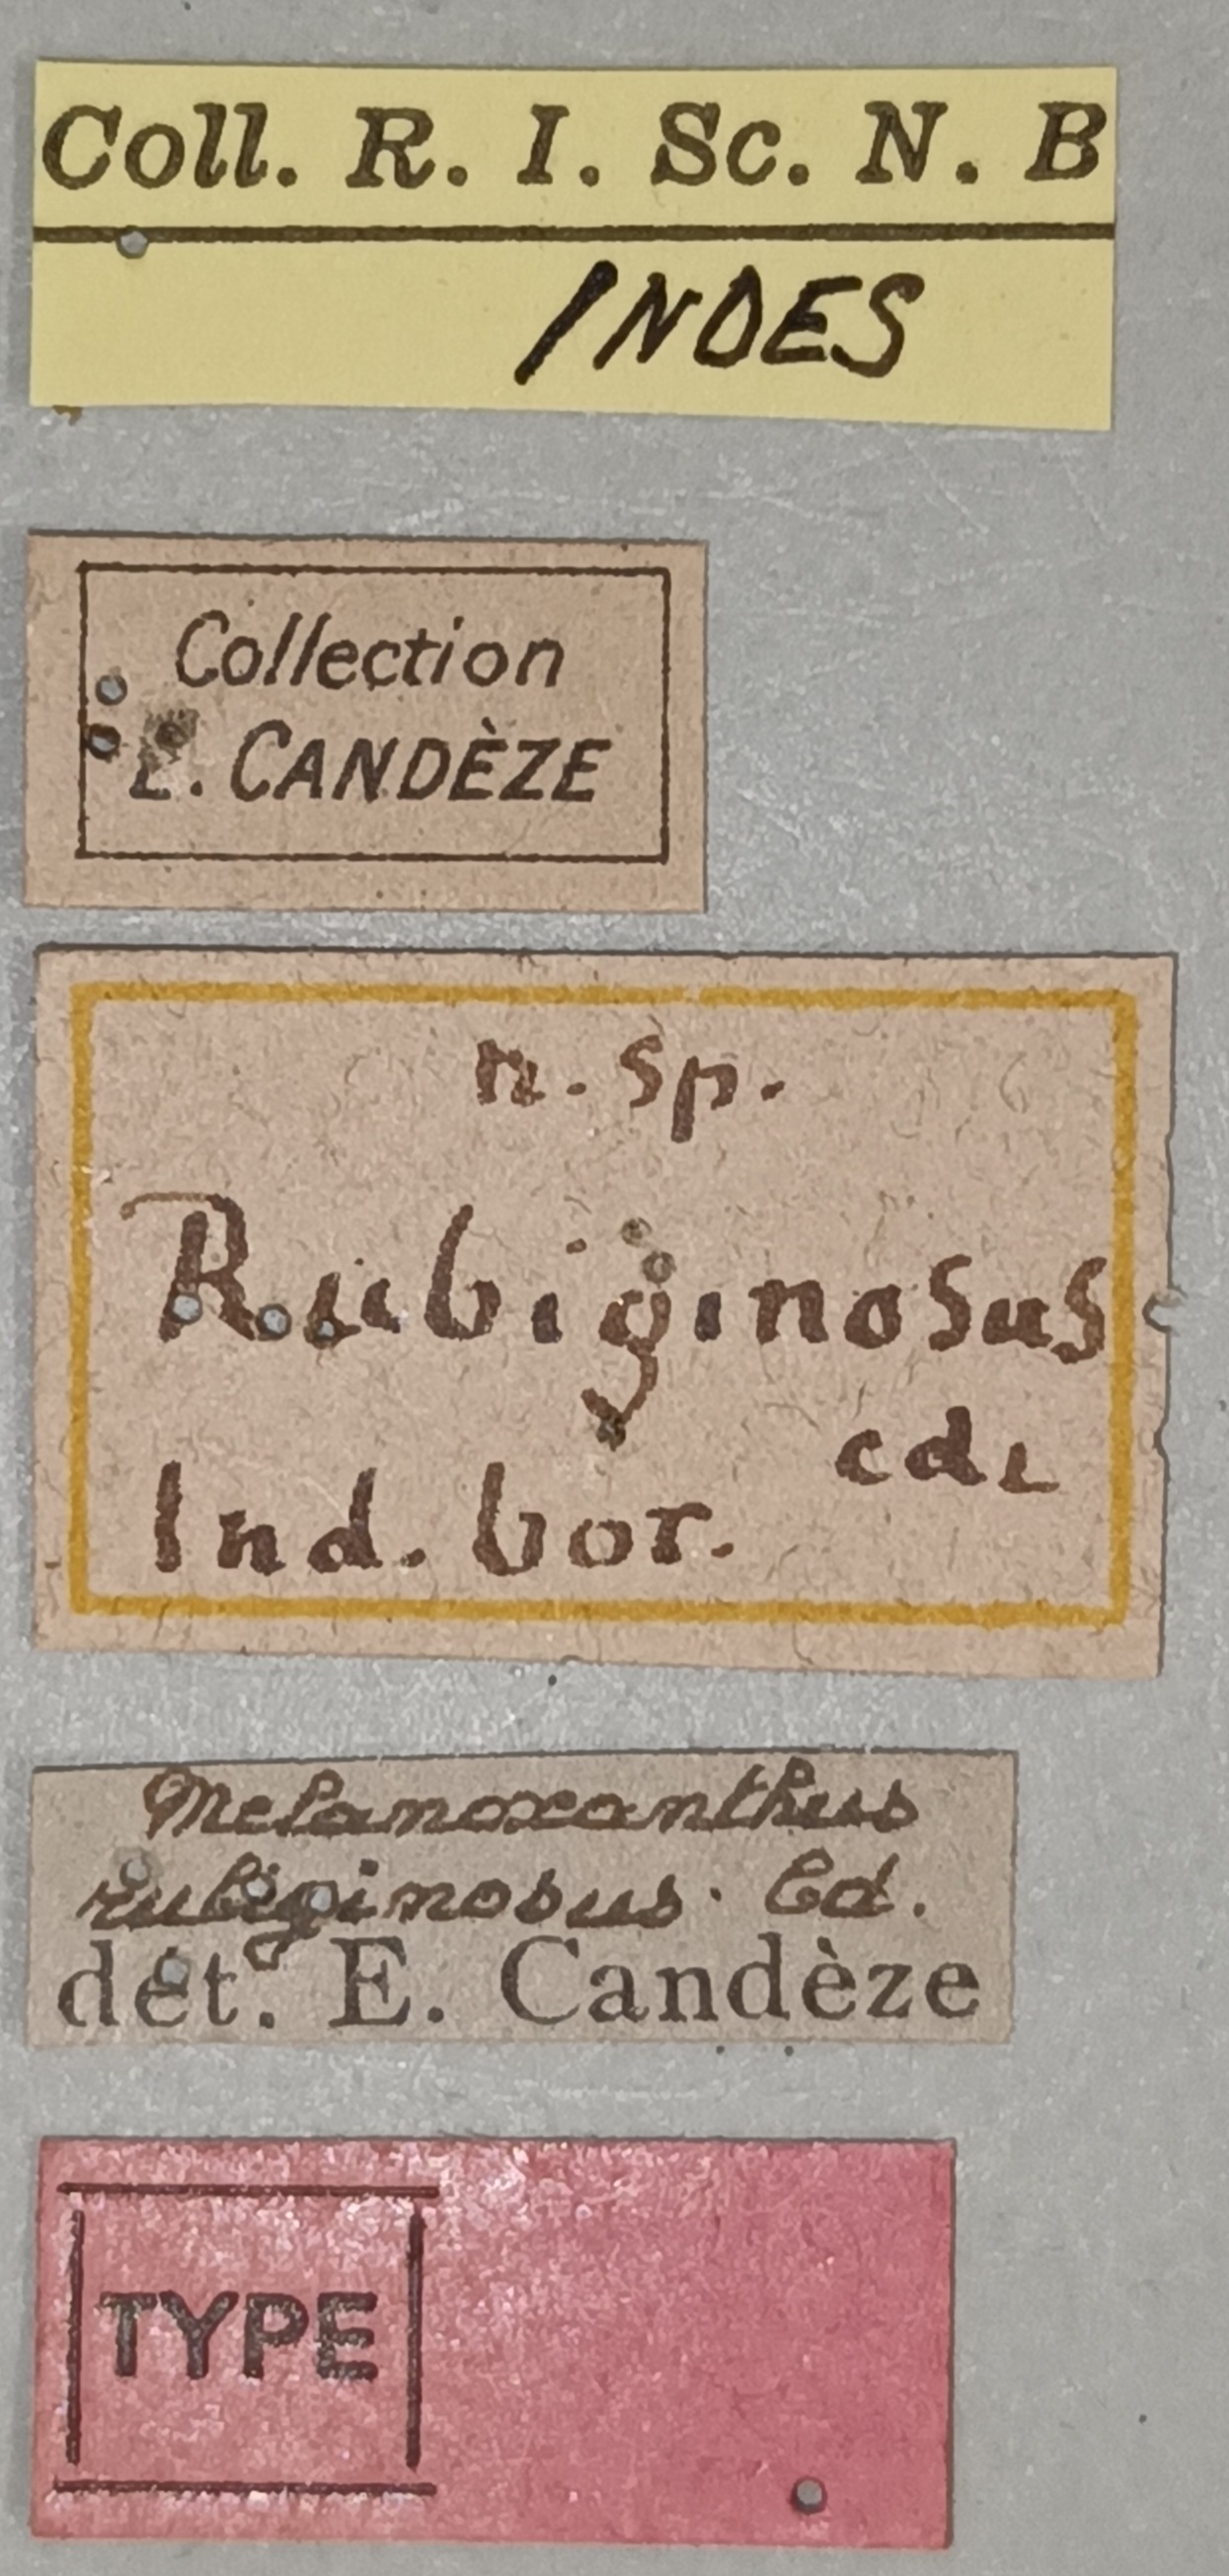 Coll. R. I. Sc. N. B
INDES
Collection
E. CANDÈZE
n. sp.
Rubiginosus
cdz
Ind. bor.
Melanoxanthus
rubiginosus. Cd.
dét. E. Candèze
TYPE